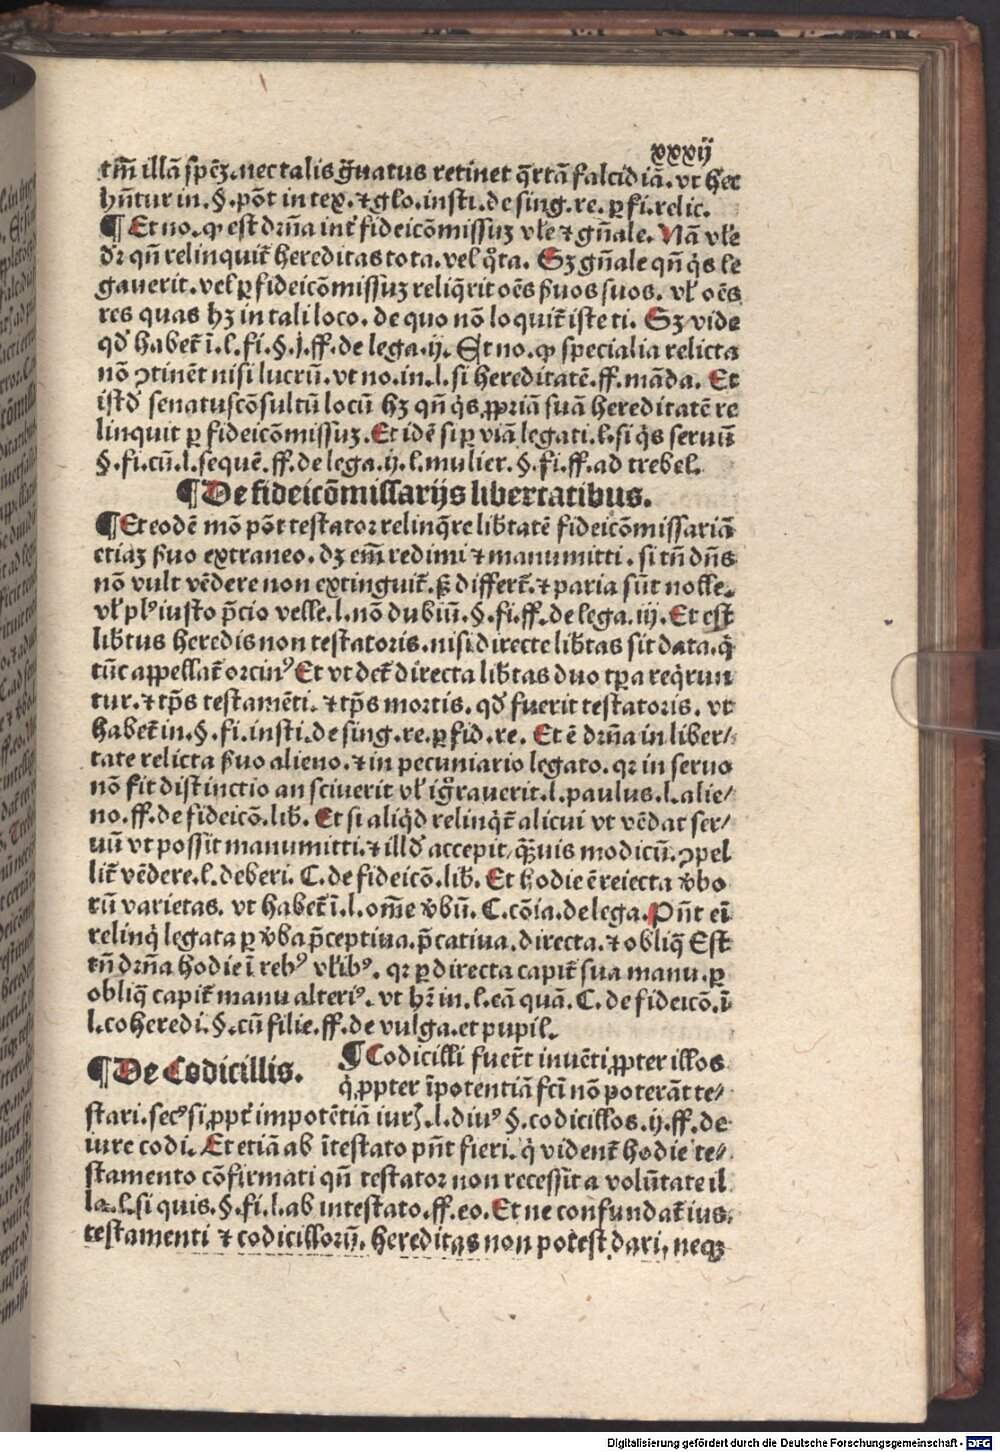 xxxij
tm̄ illā speꝫ. nec talis g̃uatus retinet q̄rtā falcidiā. vt hec
hñtur in. §. pōt in tex. ⁊ glo. insti. de sing. re. ꝑ fi. relic.
¶ Et no. ꝙ est drña int̃ fideicōmissuꝫ vl̓e ⁊ gñale. Nā vl̓e
dr̃ qñ relinquit̃ hereditas tota. vel q̊ta. Sꝫ gñale qñ q̇s le
gauerit. vel ꝑ fideicōmissuꝫ reliq̇rit oēs ẜuos suos. vl̓ oēs
res quas hꝫ in tali loco. de quo nō loquit̃ iste ti. Sꝫ vide
qd̓ habet̃ ī. l. fi. §. j. ff. de lega. ij. Et no. ꝙ specialia relicta
nō ꝯtinēt nisi lucrū. vt no. in. l. si hereditatē. ff. māda. Et
istd̓ senatuscōsultū locū hꝫ qñ q̇s ꝓpriā suā hereditatē re
linquit ꝑ fideicōmissuꝫ. Et idē si ꝑ viā legati. l. si q̇s seruū
§. fi. cū. l. sequē. ff. de lega. ij. l. mulier. §. fi. ff. ad trebel.
¶ De fideicōmissarijs libertatibus.
¶ Et eodē mō pōt testator relinq̄re lib̓tatē fideicōmissariā
etiaꝫ ẜuo extraneo. dꝫ em̄ redimi ⁊ manumitti. si tñ dñs
nō vult vēdere non extinguit̃. sꝫ differt̃. ⁊ paria sūt nolle.
vl̓ plꝰ iusto p̄cio velle. l. nō dubiū. §. fi. ff. de lega. iij. Et est
lib̓tus heredis non testatoris. nisi directe lib̓tas sit data. q̇
tūc appellat̃ orcinꝰ Et vt det̃ directa lib̓tas duo tꝑa req̇run
tur. ⁊ tꝑs testamēti. ⁊ tꝑs mortis. qd̓ fuerit testatoris. vt
habet̃ in. §. fi. insti. de sing. re. ꝑ fid. re. Et ē drña in liber⸗
tate relicta ẜuo alieno. ⁊ in pecuniario legato. qꝛ in seruo
nō fit distinctio an sciuerit vl̓ ig̊rauerit. l. paulus. l. alie⸗
no. ff. de fideicō. lib̓. Et si aliq̇d relinq̇t̃ alicui vt vēdat ser⸗
uū vt possit manumitti. ⁊ illd̓ accepit, q̄uis modicū. ꝯpel
lit̃ vēdere. l. deberi. C. de fideicō. lib̓. Et hodie ē reiecta v̓bo
rū varietas. vt habet̃ ī. l. om̄e v̓bū. C. cōia. de lega. Pñt eī
relinq̇ legata ꝑ v̓ba p̄ceptiua. p̄catiua. directa. ⁊ obliq̄ Est
tñ drña hodie ī rebꝰ vl̓ibꝰ. qꝛ ꝑ directa capit̃ sua manu. ꝑ
obliq̄ capit̃ manu alteriꝰ. vt hr̃ in. l. eā quā. C. de fideicō. ī
l. coheredi. §. cū filie. ff. de vulga. et pupil.
¶ De Codicillis. ¶ Codicilli fuer̃t inuēti ꝓpter illos
q̇ ꝓpter īpotentiā fci̇̄ nō poterāt te⸗
stari. secꝰ si ꝓpt̃ impotētiā iurꝭ. l. diuꝰ §. codicillos. ij. ff. de
iure codi. Et etiā ab ītestato pñt fieri. q̇ vident̃ hodie te⸗
stamento cōfirmati qñ testator non recessit a volūtate il
la. l. si quis. §. fi. l. ab intestato. ff. eo. Et ne confundat̃ ius
testamenti ⁊ codicillorū. hereditas non potest dari, neqꝫ
Digitalisierung gefördert durch die Deutsche Forschungsgemeinschaft - DFG